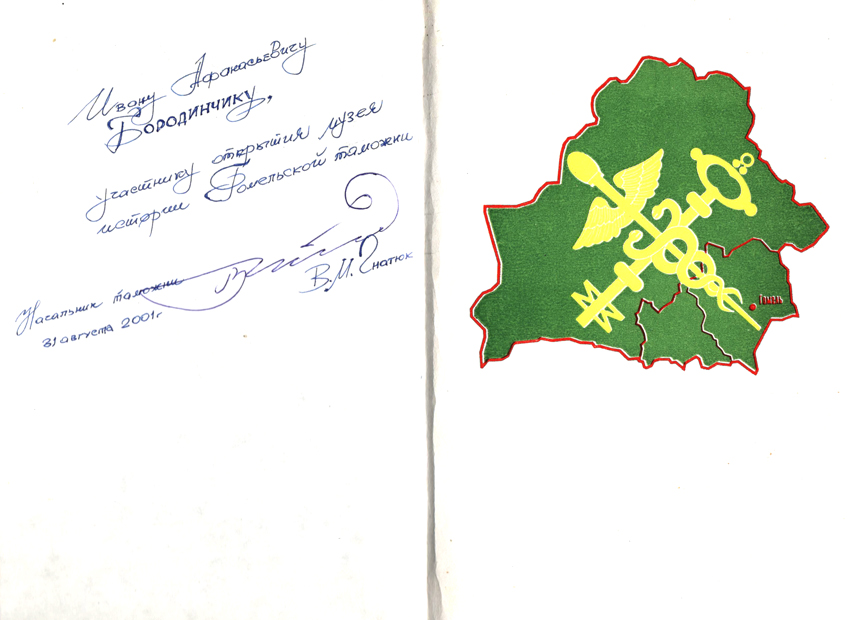 Ивану Афанасьевичу
Бородинчику,
участнику открытия музея
истории Гомельской таможни
Начальник таможни
В.М. Гнатюк
31 августа 2001г
Гомель